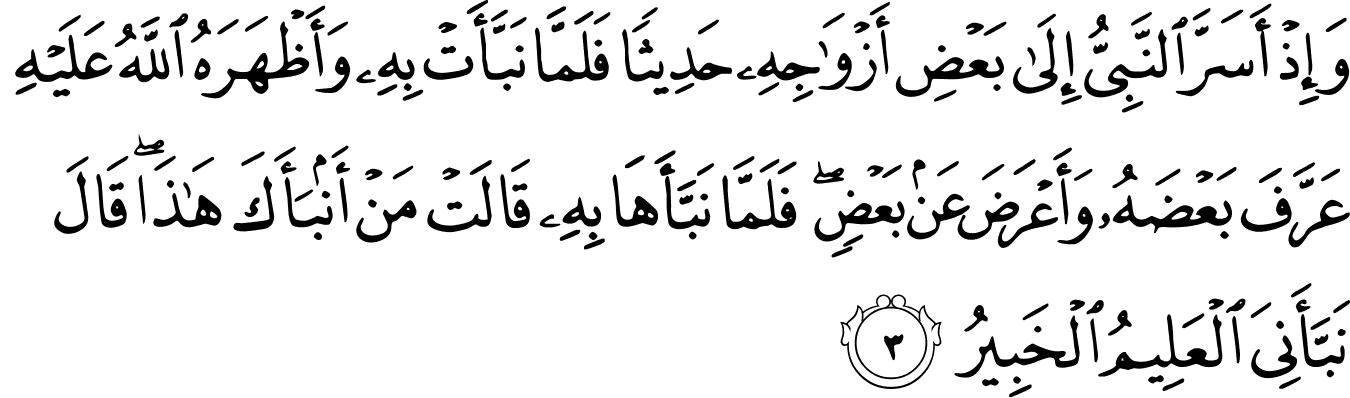 وَإِذۡ أَسَرَّ ٱلنَّبِىُّ إِلَىٰ بَعۡضِ أَزۡوَٰجِهِۦ حَدِيثٗا فَلَمَّا نَبَّأَتۡ بِهِۦ وَأَظۡهَرَهُ ٱللَّهُ عَلَيۡهِ
عَرَّفَ بَعۡضَهُۥ وَأَعۡرَضَ عَنۢ بَعۡضٖۖ فَلَمَّا نَبَّأَهَا بِهِۦ قَالَتۡ مَنۡ أَنۢبَأَكَ هَٰذَاۖ قَالَ
نَبَّأَنِىَ ٱلۡعَلِيمُ ٱلۡخَبِيرُ ٣